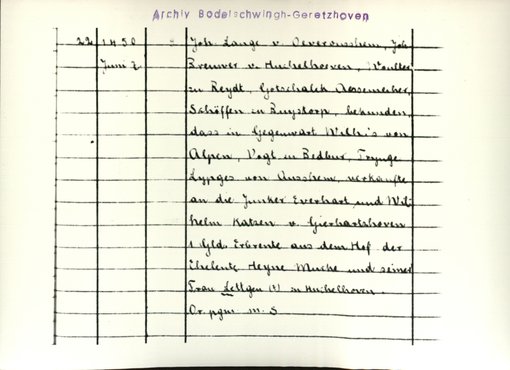 Archiv Bodelschwingh-Geretzhoven
22 1450 Joh. Lange v. Oeveraussem, Joh
Juni 2. Breuwer v. Huchelhoeven, Woulter
zu Reydt, Gotschalck
Schöffen in Buystorp, bekunden,
dass in Gegenwart Wilh's von
Alpen, Vogt zu Bedbur, Prynge
Lypges von Ausshem, verkaufte
an die Junker Everhart und Wil-
helm Katzen v. Gierhartshoven
1 Gld. Erbrente aus dem Hof der
Eheleute Heyne Mucke und seiner
Frau Lettgen (?) in Huchelhoven.
Or. pgm. m. S